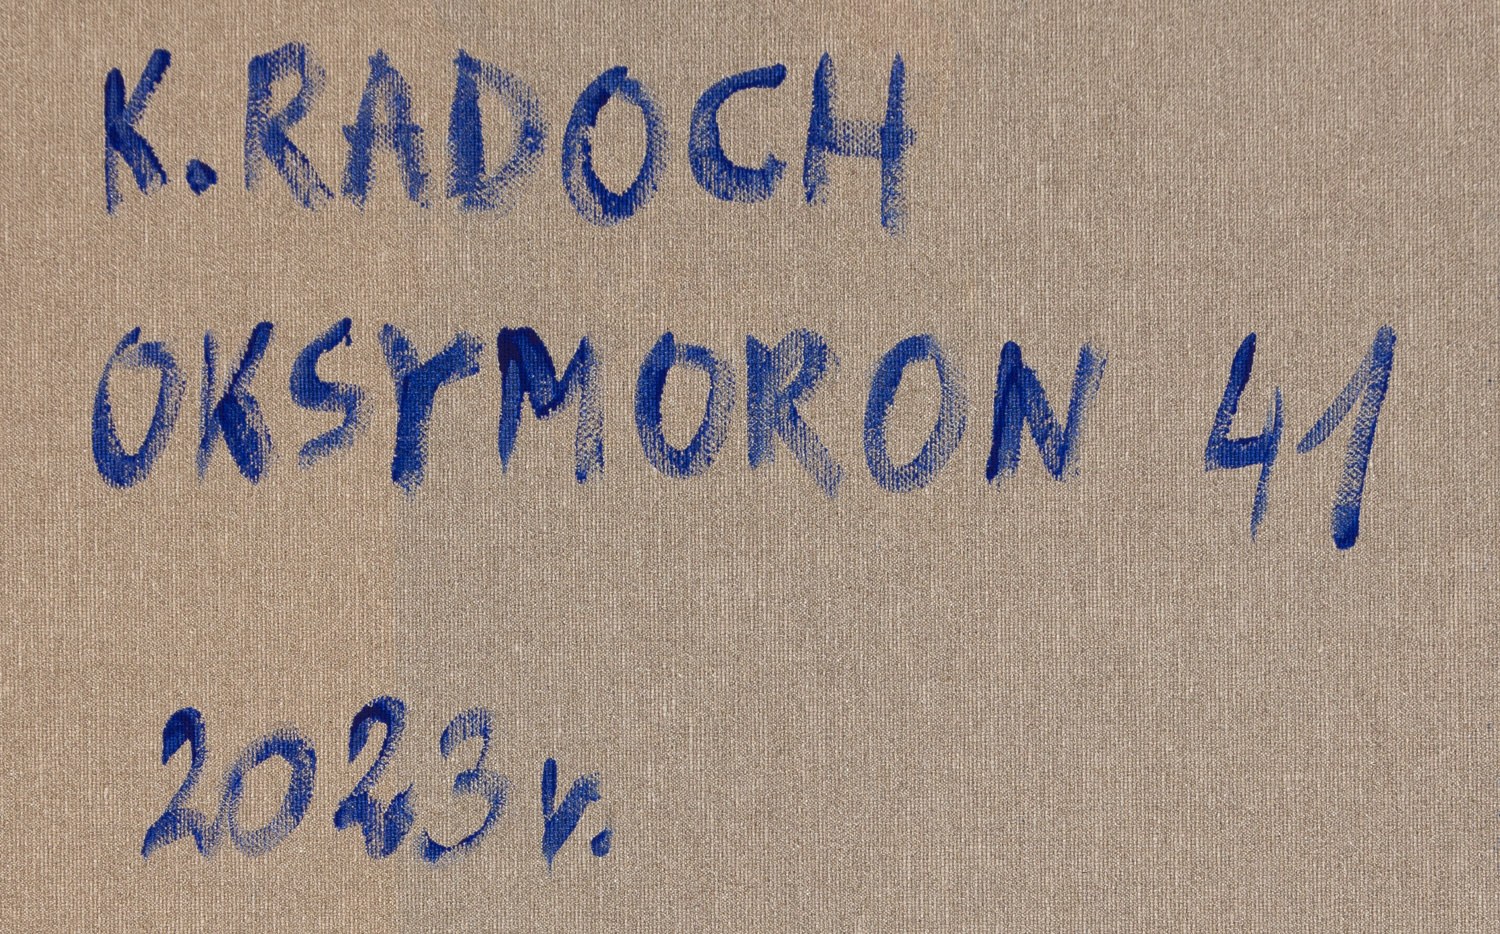 K. RADOCH
OKSYMORON 41
2023 r.